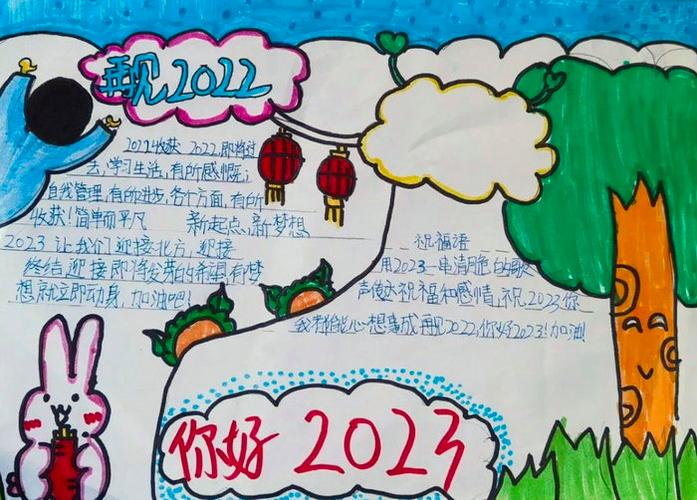 再见2022
2022收获 2022,即将过
去,学习生活,有所感慨;
自我管理,有所进步,各个方面,有所
收获!简单而平凡 新起点、新梦想
2023 让我们迎接北方,迎接
终结,迎接即将发芽的希望,有梦
想就立即动身,加油吧!
祝福语
用2023一串清脆的歌
声传达祝福和感情,祝2023你
我都能心想事成再见2022,你好2023!加油!
你好 2023